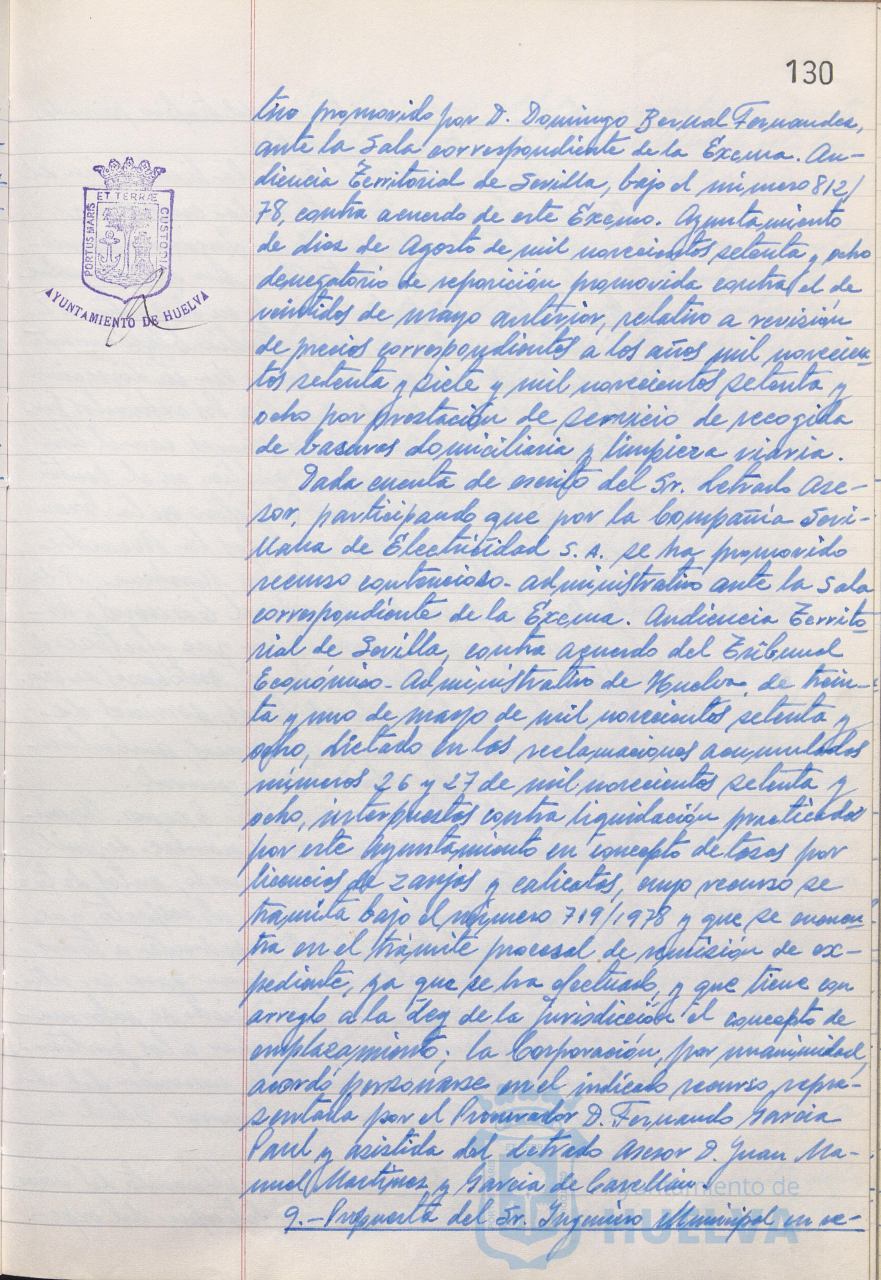 130
ET TERRÆ
PORTUS MARIS
CUSTODIA
AYUNTAMIENTO DE HUELVA
tivo promovido por D. Domingo Bernal Fernandez,
ante la Sala correspondiente de la Excma. Au-
diencia Territorial de Sevilla, bajo el número 812/
78, contra acuerdo de este Excmo. Ayuntamiento
de diez de Agosto de mil novecientos setenta y ocho
denegatorio de reposición promovida contra el de
veintidos de mayo anterior, relativo a revisión
de precios correspondientes a los años mil novecien-
tos setenta y siete y mil novecientos setenta y
ocho por prestación de servicio de recogida
de basuras domiciliaria y limpieza viaria.
Dada cuenta de escrito del Sr. Letrado Ase-
sor, participando que por la Compañia Sevi-
llana de Electricidad S. A. se ha promovido
recurso contencioso-administrativo ante la Sala
correspondiente de la Excma. Audiencia Territo-
rial de Sevilla, contra acuerdo del Tribunal
Económico-Administrativo de Huelva, de trein-
ta y uno de mayo de mil novecientos setenta y
ocho, dictado en las reclamaciones acumuladas
números 26 y 27 de mil novecientos setenta y
ocho, interpuestas contra liquidación practicada
por este Ayuntamiento en concepto de tasas por
licencias de zanjas y calicatas, cuyo recurso se
tramita bajo el número 719/1978 y que se encuen-
tra en el trámite procesal de remisión de ex-
pediente, ya que se ha efectuado, y que tiene con
arreglo a la Ley de la Jurisdicción el concepto de
emplazamiento; la Corporación, por unanimidad,
acordó personarse en el indicado recurso, repre-
sentada por el Procurador D. Fernando Garcia
Paul y asistida del Letrado Asesor D. Juan Ma-
nuel Martinez y Garcia de
9.- Propuesta del Sr. Ingeniero Municipal en re-
Ayuntamiento de
HUELVA